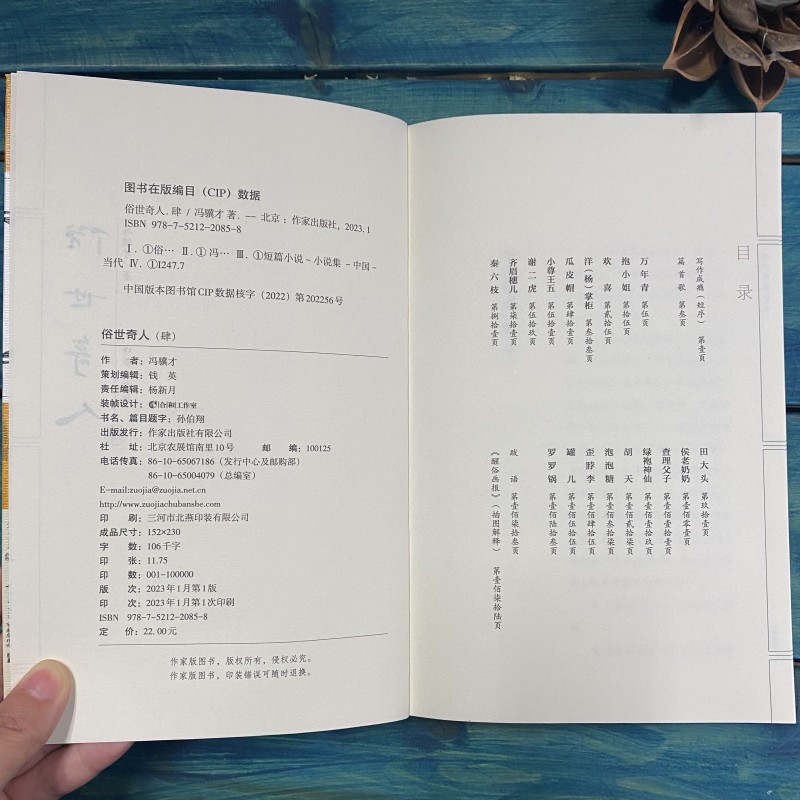 图书在版编目（CIP）数据
俗世奇人. 肆 / 冯骥才著. — 北京：作家出版社，2023.1
ISBN 978-7-5212-2085-8
Ⅰ. ①俗… Ⅱ. ①冯… Ⅲ. ①短篇小说－小说集－中国－
当代 Ⅳ. ①I247.7
中国版本图书馆CIP数据核字（2022）第202256号
俗世奇人（肆）
作 者：冯骥才
策划编辑：钱 英
责任编辑：杨新月
装帧设计：合和工作室
书名、篇目题字：孙伯翔
出版发行：作家出版社有限公司
社 址：北京农展馆南里10号 邮 编：100125
电话传真：86-10-65067186（发行中心及邮购部）
86-10-65004079（总编室）
E-mail:zuojia@zuojia.net.cn
http://www.zuojiachubanshe.com
印 刷：三河市北燕印装有限公司
成品尺寸：152×230
字 数：106千字
印 张：11.75
印 数：001-100000
版 次：2023年1月第1版
印 次：2023年1月第1次印刷
ISBN 978-7-5212-2085-8
定 价：22.00元
作家版图书，版权所有，侵权必究。
作家版图书，印装错误可随时退换。
目录
写作成瘾（短序） 第壹页
篇首歌 第叁页
万年青 第伍页
抱小姐 第拾伍页
欢喜 第贰拾伍页
洋（杨）掌柜 第叁拾叁页
瓜皮帽 第肆拾壹页
小尊王五 第伍拾壹页
谢二虎 第伍拾玖页
齐眉穗儿 第柒拾壹页
秦六枝 第捌拾壹页
田大头 第玖拾壹页
侯老奶奶 第壹佰零壹页
查理父子 第壹佰壹拾壹页
绿袍神仙 第壹佰壹拾玖页
胡天 第壹佰贰拾柒页
泡泡糖 第壹佰叁拾柒页
歪脖李 第壹佰肆拾伍页
罐儿 第壹佰伍拾伍页
罗罗锅 第壹佰陆拾叁页
跋语 第壹佰柒拾叁页
《醒俗画报》（插图解释） 第壹佰柒拾陆页